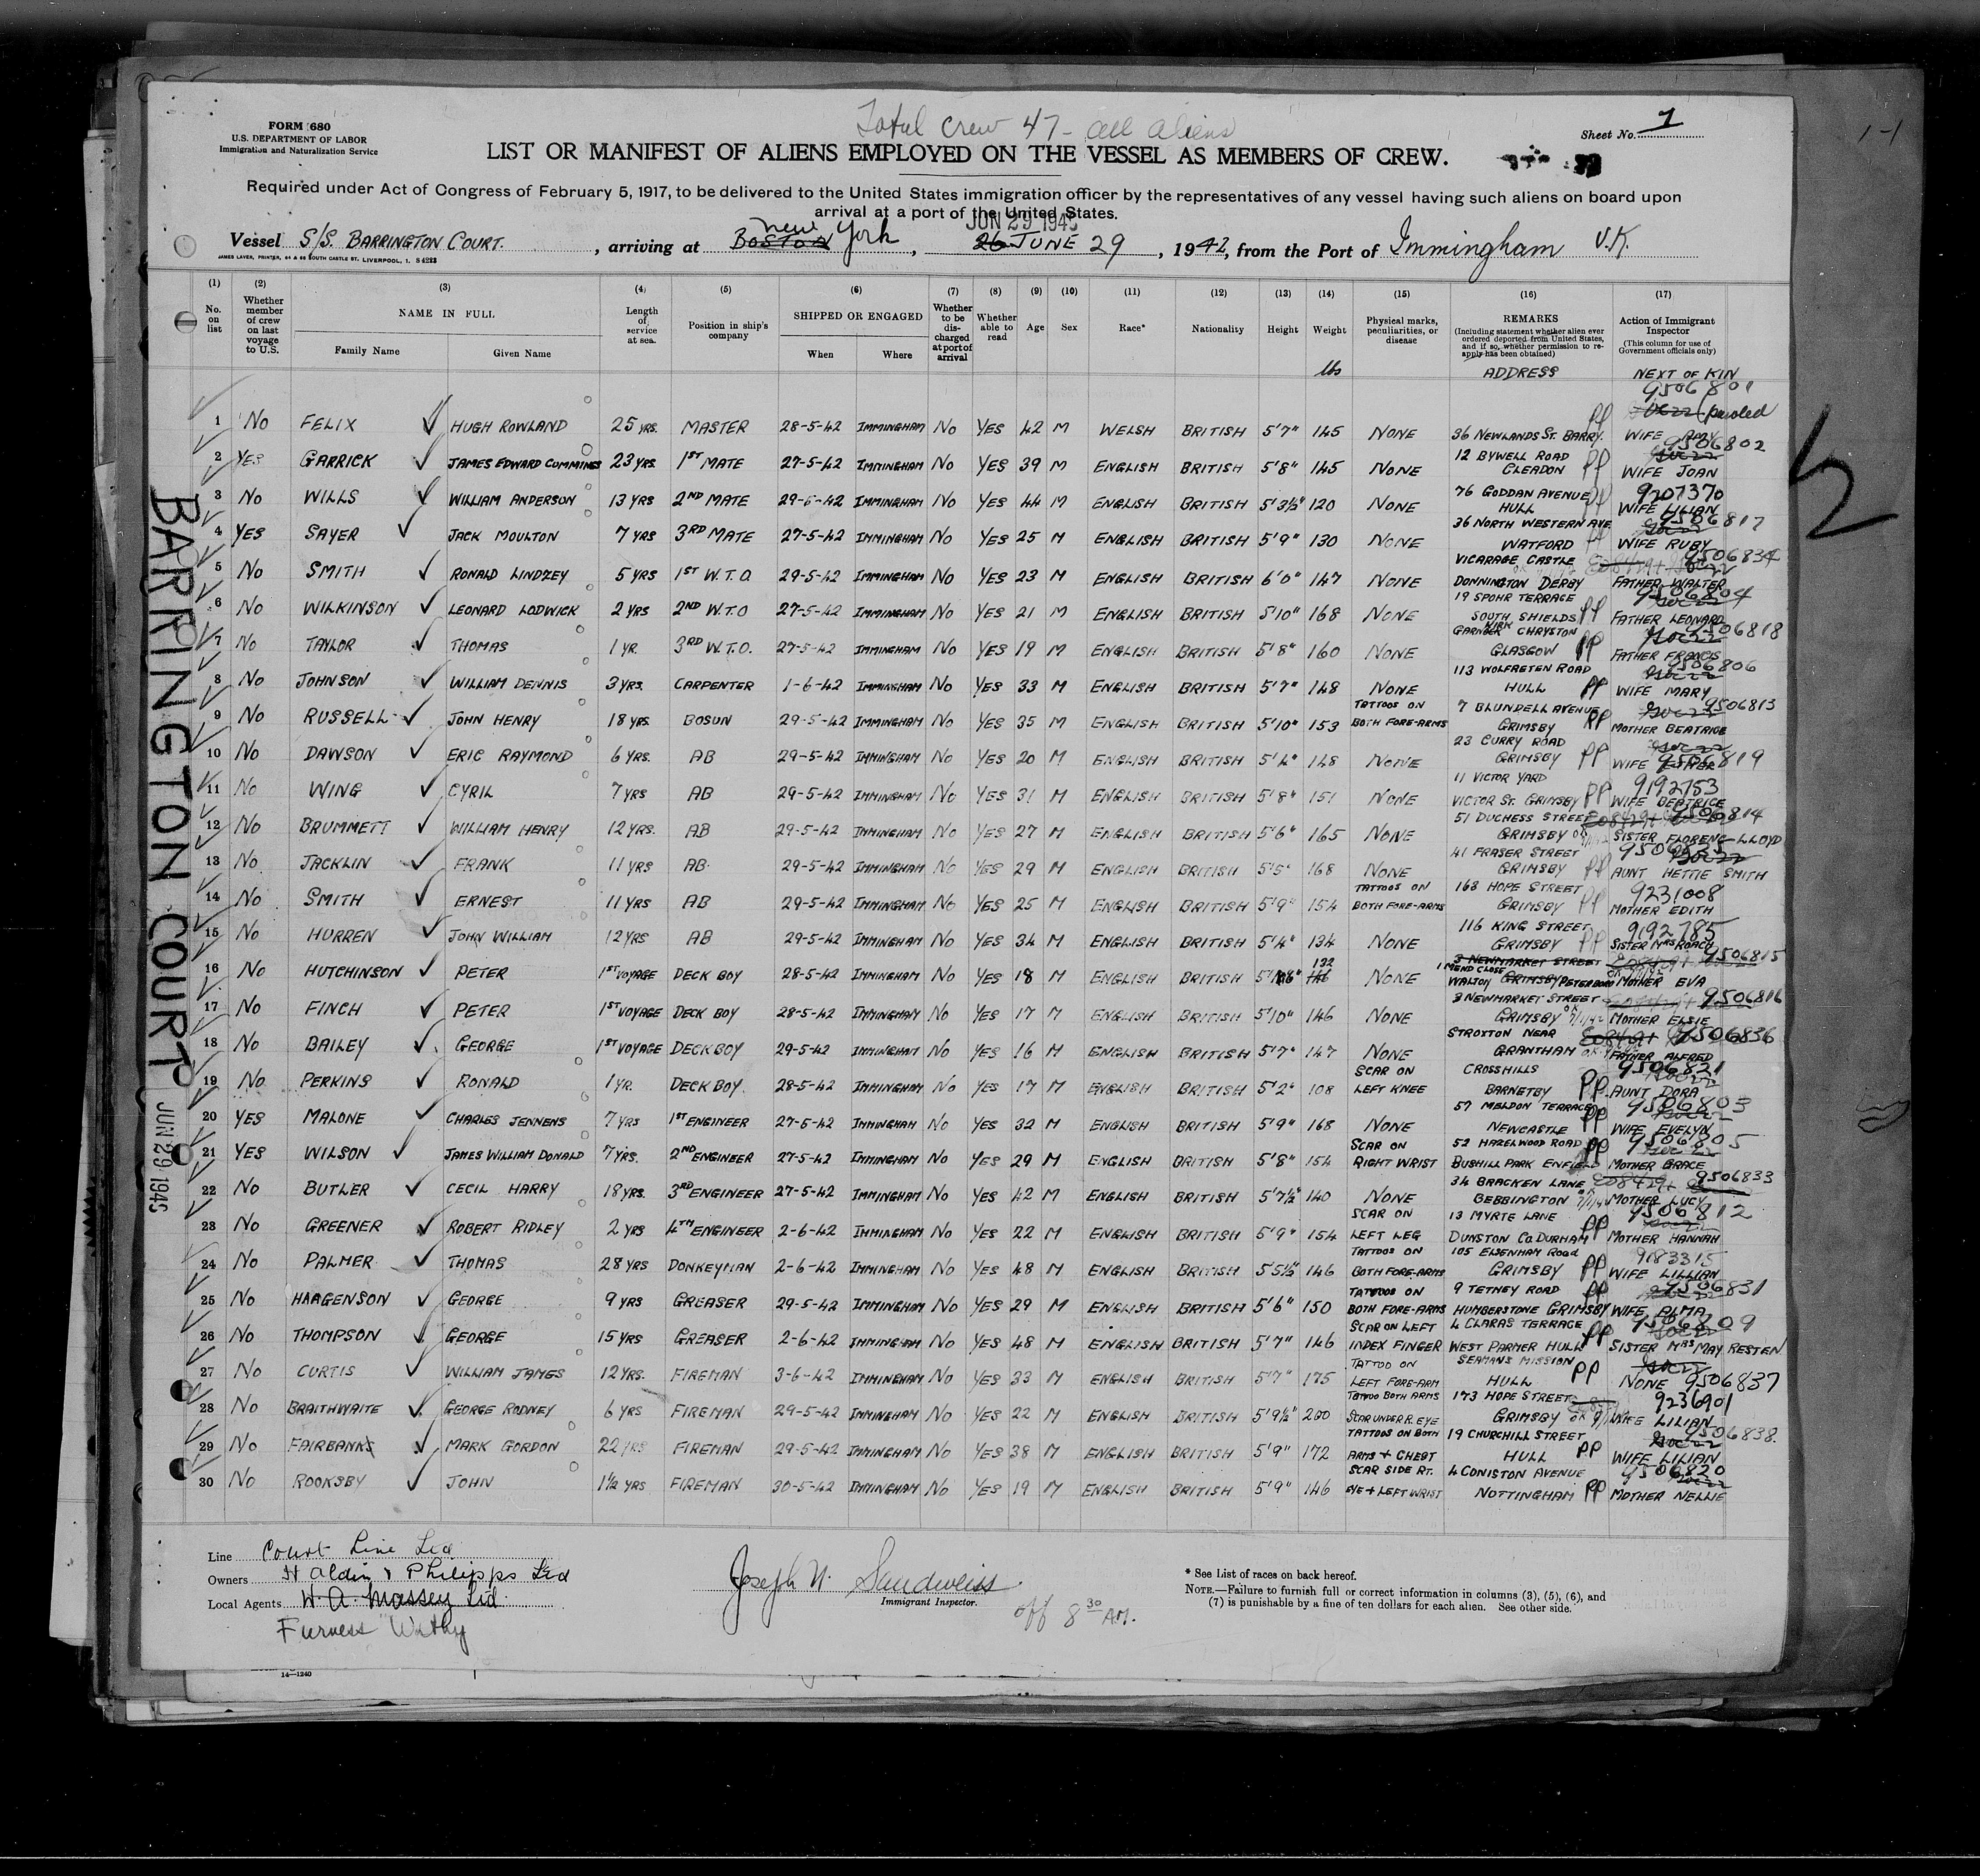 Total crew 47 - all aliens
FORM 680
U.S. DEPARTMENT OF LABOR
Immigration and Naturalization Service
Sheet No. 1
LIST OR MANIFEST OF ALIENS EMPLOYED ON THE VESSEL AS MEMBERS OF CREW.
Required under Act of Congress of February 5, 1917, to be delivered to the United States immigration officer by the representatives of any vessel having such aliens on board upon
arrival at a port of the United States.
JUN 29 194
Vessel S/S. BARRINGTON COURT. , arriving at BOSTON New York , 26 JUNE 29 , 1942, from the Port of Immingham U.K.
JAMES LAVER, PRINTER, 64 & 66 SOUTH CASTLE ST. LIVERPOOL, 1.
(1) No. on list (2) Whether member of crew on last voyage to U.S. (3) NAME IN FULL Family Name Given Name (4) Length of service at sea. (5) Position in ship's company (6) SHIPPED OR ENGAGED When Where (7) Whether to be discharged at port of arrival (8) Whether able to read (9) Age (10) Sex (11) Race* (12) Nationality (13) Height (14) Weight lbs (15) Physical marks, peculiarities, or disease (16) REMARKS (Including statement whether alien ever ordered deported from United States, and if so, whether permission to re-apply has been obtained) ADDRESS (17) Action of Immigrant Inspector (This column for use of Government officials only) NEXT OF KIN
1 No FELIX HUGH ROWLAND 25 YRS. MASTER 28-5-42 IMMINGHAM No YES 42 M WELSH BRITISH 5'7" 145 NONE 36 NEWLANDS ST. BARRY. PP WIFE AMY 9506801 paroled
2 YES GARRICK JAMES EDWARD CUMMINGS 23 YRS. 1ST MATE 27-5-42 IMMINGHAM No YES 39 M ENGLISH BRITISH 5'8" 145 NONE 12 BYWELL ROAD CLEADON PP WIFE JOAN 9506802
3 No WILLS WILLIAM ANDERSON 13 YRS 2ND MATE 29-5-42 IMMINGHAM No YES 44 M ENGLISH BRITISH 5'3½" 120 NONE 76 GODDAN AVENUE HULL PP WIFE LILIAN 9207370
4 YES SAYER JACK MOULTON 7 YRS 3RD MATE 27-5-42 IMMINGHAM No YES 25 M ENGLISH BRITISH 5'9" 130 NONE 36 NORTH WESTERN AVE WATFORD PP WIFE RUBY 9506817
5 No SMITH RONALD LINDZEY 5 YRS 1ST W.T.O. 29-5-42 IMMINGHAM No YES 23 M ENGLISH BRITISH 6'0" 147 NONE VICARAGE CASTLE DONNINGTON DERBY FATHER WALTER 9506834
6 No WILKINSON LEONARD LODWICK 2 YRS 2ND W.T.O 27-5-42 IMMINGHAM No YES 21 M ENGLISH BRITISH 5'10" 168 NONE 19 SPOHR TERRACE SOUTH SHIELDS PP FATHER LEONARD 9506804
7 No TAYLOR THOMAS 1 YR. 3RD W.T.O. 27-5-42 IMMINGHAM No YES 19 M ENGLISH BRITISH 5'8" 160 NONE CHRYSTON GLASGOW PP FATHER FRANCIS 9506818
8 No JOHNSON WILLIAM DENNIS 3 YRS. CARPENTER 1-6-42 IMMINGHAM No YES 33 M ENGLISH BRITISH 5'7" 148 NONE 113 WOLFRETEN ROAD HULL PP WIFE MARY 9506806
9 No RUSSELL JOHN HENRY 18 YRS. BOSUN 29-5-42 IMMINGHAM No YES 35 M ENGLISH BRITISH 5'10" 153 TATTOOS ON BOTH FORE-ARMS 7 BLUNDELL AVENUE GRIMSBY PP MOTHER BEATRICE 9506813
10 No DAWSON ERIC RAYMOND 6 YRS. AB 29-5-42 IMMINGHAM No YES 20 M ENGLISH BRITISH 5'4" 148 NONE 23 CURRY ROAD GRIMSBY PP WIFE ESTHER 9506819
11 No WING CYRIL 7 YRS AB 29-5-42 IMMINGHAM No YES 31 M ENGLISH BRITISH 5'8" 151 NONE 11 VICTOR YARD VICTOR ST. GRIMSBY PP WIFE BEATRICE 9192753
12 No BRUMMETT WILLIAM HENRY 12 YRS. AB 29-5-42 IMMINGHAM No YES 27 M ENGLISH BRITISH 5'6" 165 NONE 51 DUCHESS STREET GRIMSBY SISTER FLORENCE LLOYD 9506814
13 No JACKLIN FRANK 11 YRS AB. 29-5-42 IMMINGHAM No YES 29 M ENGLISH BRITISH 5'5" 168 NONE 41 FRASER STREET GRIMSBY PP AUNT HETTIE SMITH
14 No SMITH ERNEST 11 YRS AB 29-5-42 IMMINGHAM No YES 25 M ENGLISH BRITISH 5'9" 154 TATTOOS ON BOTH FORE-ARMS 168 HOPE STREET GRIMSBY PP MOTHER EDITH 9231008
15 No HURREN JOHN WILLIAM 12 YRS AB 29-5-42 IMMINGHAM No YES 34 M ENGLISH BRITISH 5'4" 134 NONE 116 KING STREET GRIMSBY PP SISTER MRS ROACH 9192785
16 No HUTCHINSON PETER 1ST VOYAGE DECK BOY 28-5-42 IMMINGHAM No YES 18 M ENGLISH BRITISH 132 146 NONE 3 NEWMARKET STREET GRIMSBY 1 MEND CLOSE WALTON PETERBORO MOTHER EVA 9506815
17 No FINCH PETER 1ST VOYAGE DECK BOY 28-5-42 IMMINGHAM No YES 17 M ENGLISH BRITISH 5'10" 146 NONE 3 NEWMARKET STREET GRIMSBY MOTHER ELSIE 9506816
18 No BAILEY GEORGE 1ST VOYAGE DECK BOY 29-5-42 IMMINGHAM No YES 16 M ENGLISH BRITISH 5'7" 147 NONE STROXTON NEAR GRANTHAM FATHER ALFRED 9506836
19 No PERKINS RONALD 1 YR. DECK BOY. 28-5-42 IMMINGHAM No YES 17 M ENGLISH BRITISH 5'2" 108 SCAR ON LEFT KNEE CROSSHILLS BARNETBY PP AUNT DORA 9506821
20 YES MALONE CHARLES JENNENS 7 YRS 1ST ENGINEER 27-5-42 IMMINGHAM No YES 32 M ENGLISH BRITISH 5'9" 168 NONE 57 MELDON TERRACE NEWCASTLE PP WIFE EVELYN 9506803
21 YES WILSON JAMES WILLIAM DONALD 7 YRS. 2ND ENGINEER 27-5-42 IMMINGHAM No YES 29 M ENGLISH BRITISH 5'8" 154 SCAR ON RIGHT WRIST 52 HAZELWOOD ROAD BUSHILL PARK ENFIELD PP MOTHER GRACE 9506805
22 No BUTLER CECIL HARRY 18 YRS. 3RD ENGINEER 27-5-42 IMMINGHAM No YES 42 M ENGLISH BRITISH 5'7½" 140 NONE 34 BRACKEN LANE BEBBINGTON MOTHER LUCY 9506833
23 No GREENER ROBERT RIDLEY 2 YRS 4TH ENGINEER 2-6-42 IMMINGHAM No YES 22 M ENGLISH BRITISH 5'9" 154 SCAR ON LEFT LEG 13 MYRTE LANE DUNSTON CO. DURHAM PP MOTHER HANNAH 9506812
24 No PALMER THOMAS 28 YRS DONKEYMAN 2-6-42 IMMINGHAM No YES 48 M ENGLISH BRITISH 5'5½" 146 TATTOOS ON BOTH FORE-ARMS 105 ELSENHAM ROAD GRIMSBY PP WIFE LILLIAN 9183315
25 No HAAGENSON GEORGE 9 YRS GREASER 29-5-42 IMMINGHAM No YES 29 M ENGLISH BRITISH 5'6" 150 TATTOOS ON BOTH FORE-ARMS 9 TETNEY ROAD HUMBERSTONE GRIMSBY PP WIFE ALMA 9506831
26 No THOMPSON GEORGE 15 YRS GREASER 2-6-42 IMMINGHAM No YES 48 M ENGLISH BRITISH 5'7" 146 SCAR ON LEFT INDEX FINGER 4 CLARAS TERRACE WEST PARMER HULL PP SISTER MRS MAY RESTEN 9506809
27 No CURTIS WILLIAM JAMES 12 YRS. FIREMAN 3-6-42 IMMINGHAM No YES 33 M ENGLISH BRITISH 5'7" 175 TATTOO ON LEFT FORE-ARM SEAMANS MISSION HULL PP NONE 9506837
28 No BRAITHWAITE GEORGE RODNEY 6 YRS FIREMAN 29-5-42 IMMINGHAM No YES 22 M ENGLISH BRITISH 5'9½" 200 TATTOO BOTH ARMS SCAR UNDER R. EYE 173 HOPE STREET GRIMSBY WIFE LILIAN 9236901
29 No FAIRBANKS MARK GORDON 22 YRS FIREMAN 29-5-42 IMMINGHAM No YES 38 M ENGLISH BRITISH 5'9" 172 TATTOOS ON BOTH ARMS + CHEST 19 CHURCHILL STREET HULL PP WIFE LILIAN 9506838
30 No ROOKSBY JOHN 1½ YRS FIREMAN 30-5-42 IMMINGHAM No YES 19 M ENGLISH BRITISH 5'9" 146 SCAR SIDE RT. EYE + LEFT WRIST 4 CONISTON AVENUE NOTTINGHAM PP MOTHER NELLIE 9506820
BARRINGTON COURT
JUN 29 1943
Line Court Line Ltd
Owners Haldin & Philipps Ltd
Local Agents W. A. Massey Ltd.
Furness Withy
Joseph N. Sandweiss
Immigrant Inspector.
off 8 30 AM.
* See List of races on back hereof.
NOTE.—Failure to furnish full or correct information in columns (3), (5), (6), and
(7) is punishable by a fine of ten dollars for each alien. See other side.
14—1240